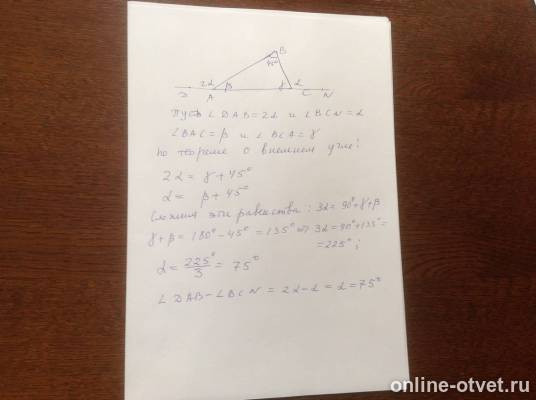 B
45°
D 2α A β γ α C N
Пусть ∠DAB=2α и ∠BCN=α
∠BAC=β и ∠BCA=γ
по теореме о внешнем угле:
2α = γ+45°
α = β+45°
Сложим эти равенства: 3α=90°+γ+β
γ+β = 180°-45° = 135° ⇒ 3α=90°+135°=
=225°;
α = 225°/3 = 75°
∠DAB-∠BCN = 2α-α = α = 75°
online-otvet.ru